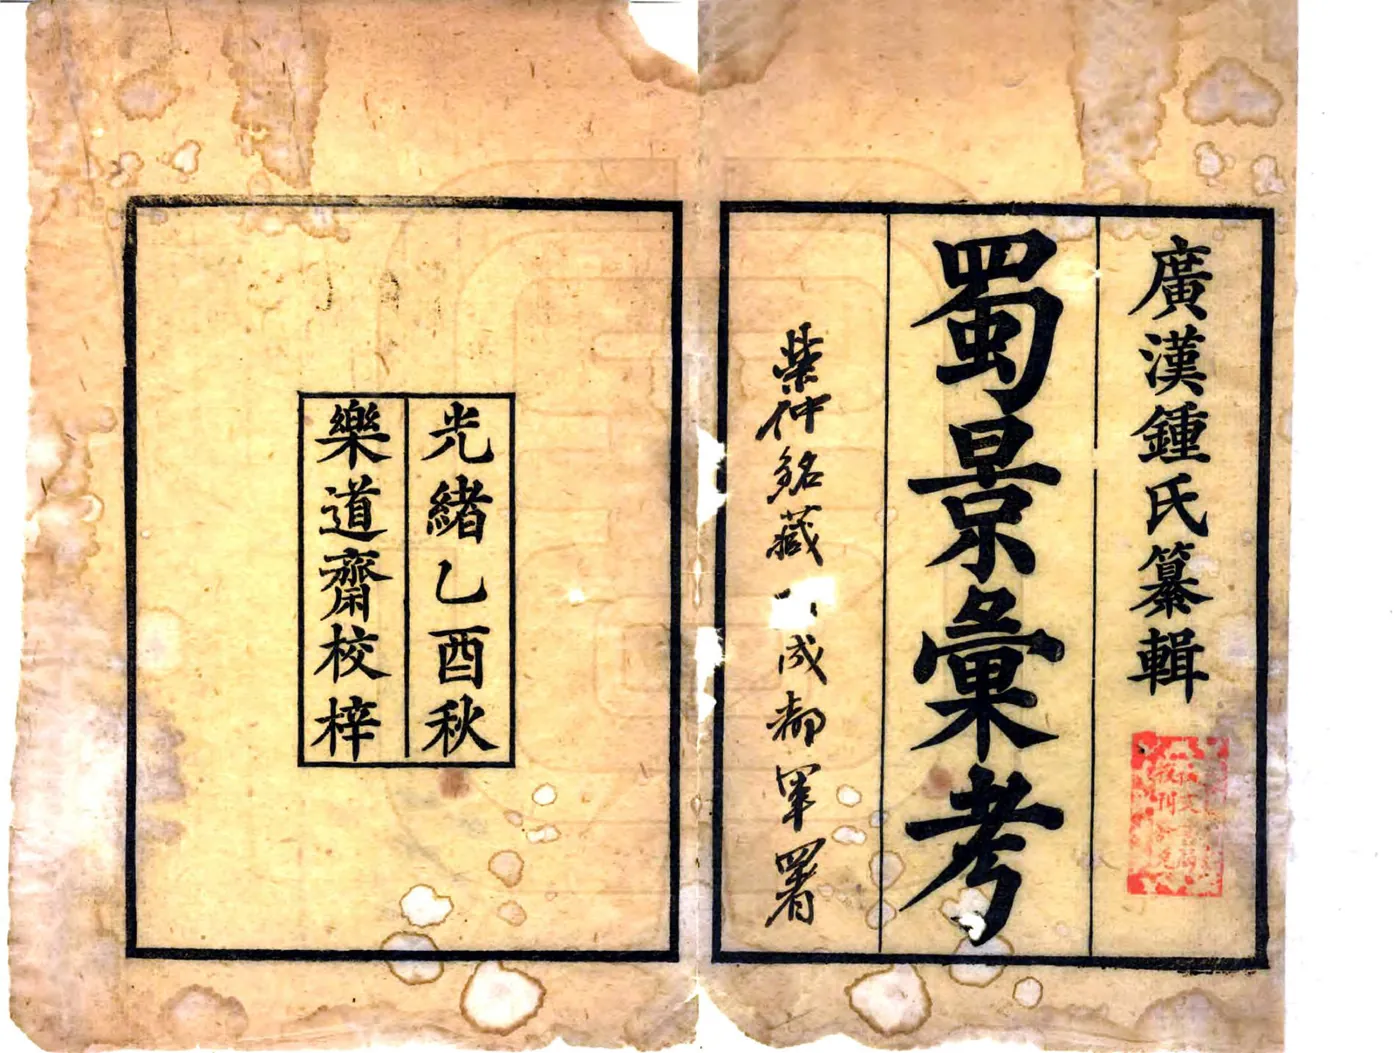 廣漢鍾氏纂輯
蜀景彙考
柴仲銘藏 成都軍署
光緒乙酉秋
樂道齋校梓